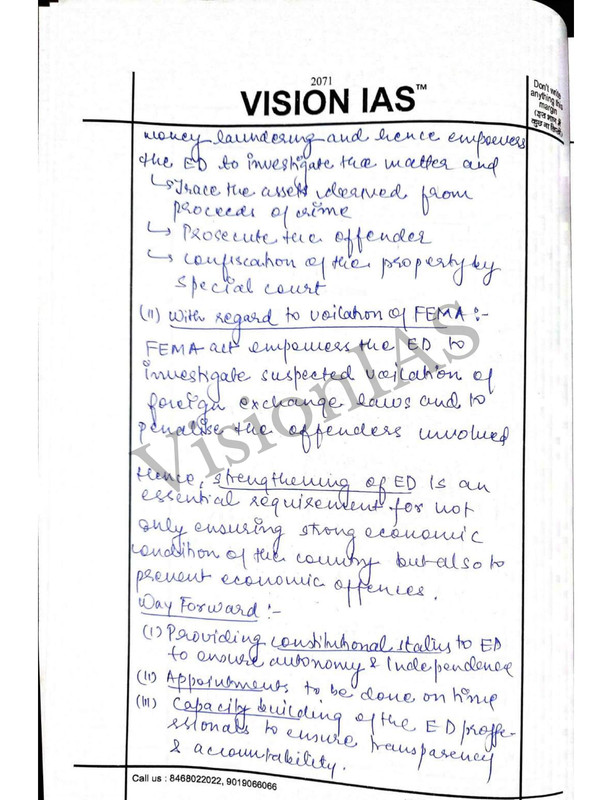 2071
VISION IAS™
Don't write
anything this
margin
(इस भाग में
कुछ ना लिखें)
money laundering and hence empowers
the ED to investigate the matter and
↳ Trace the assets derived from
proceeds of crime
↳ Prosecute the offender
↳ confiscation of the property by
special court
(II) With regard to voilation of FEMA :-
FEMA act empowers the ED to
investigate suspected voilation of
foreign exchange laws and to
penalise the offenders involved
Hence, strengthening of ED is an
essential requirement for not
only ensuring strong economic
condition of the country but also to
prevent economic offences.
Way Forward :-
(I) Providing constitutional status to ED
to ensure autonomy & Independence
(II) Appointments to be done on time
(III) Capacity building of the ED proffe-
ssionals to ensure transparency
& accountability.
VisionIAS
Call us : 8468022022, 9019066066